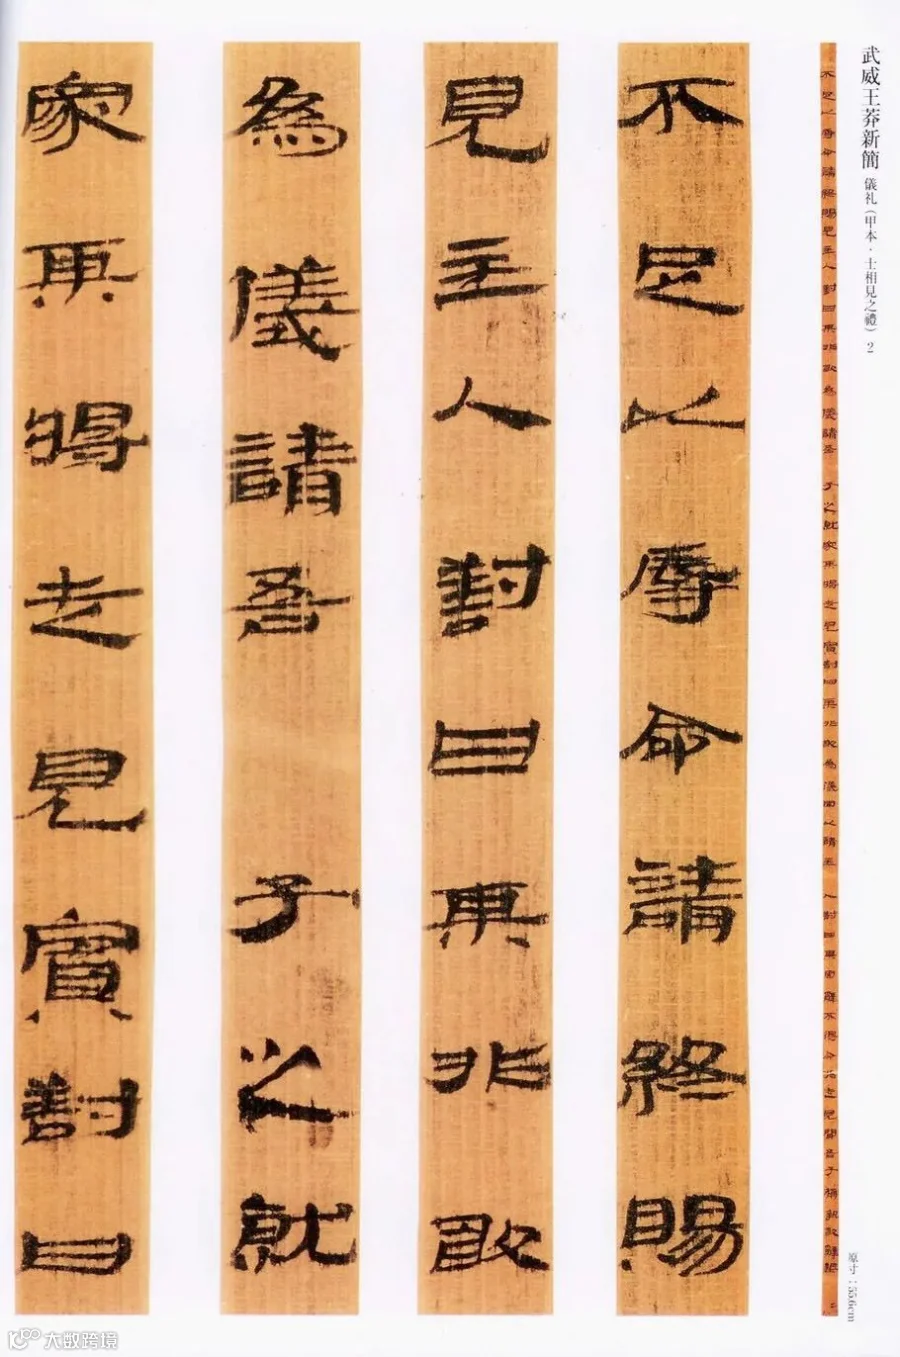 武威王莽新簡 儀礼(甲本・士相見之禮) 2
原寸：55.6cm
不足以辱命請終賜
見主人對曰某非敢
為儀請吾 子之就
家某將走見賓對曰
大数跨境